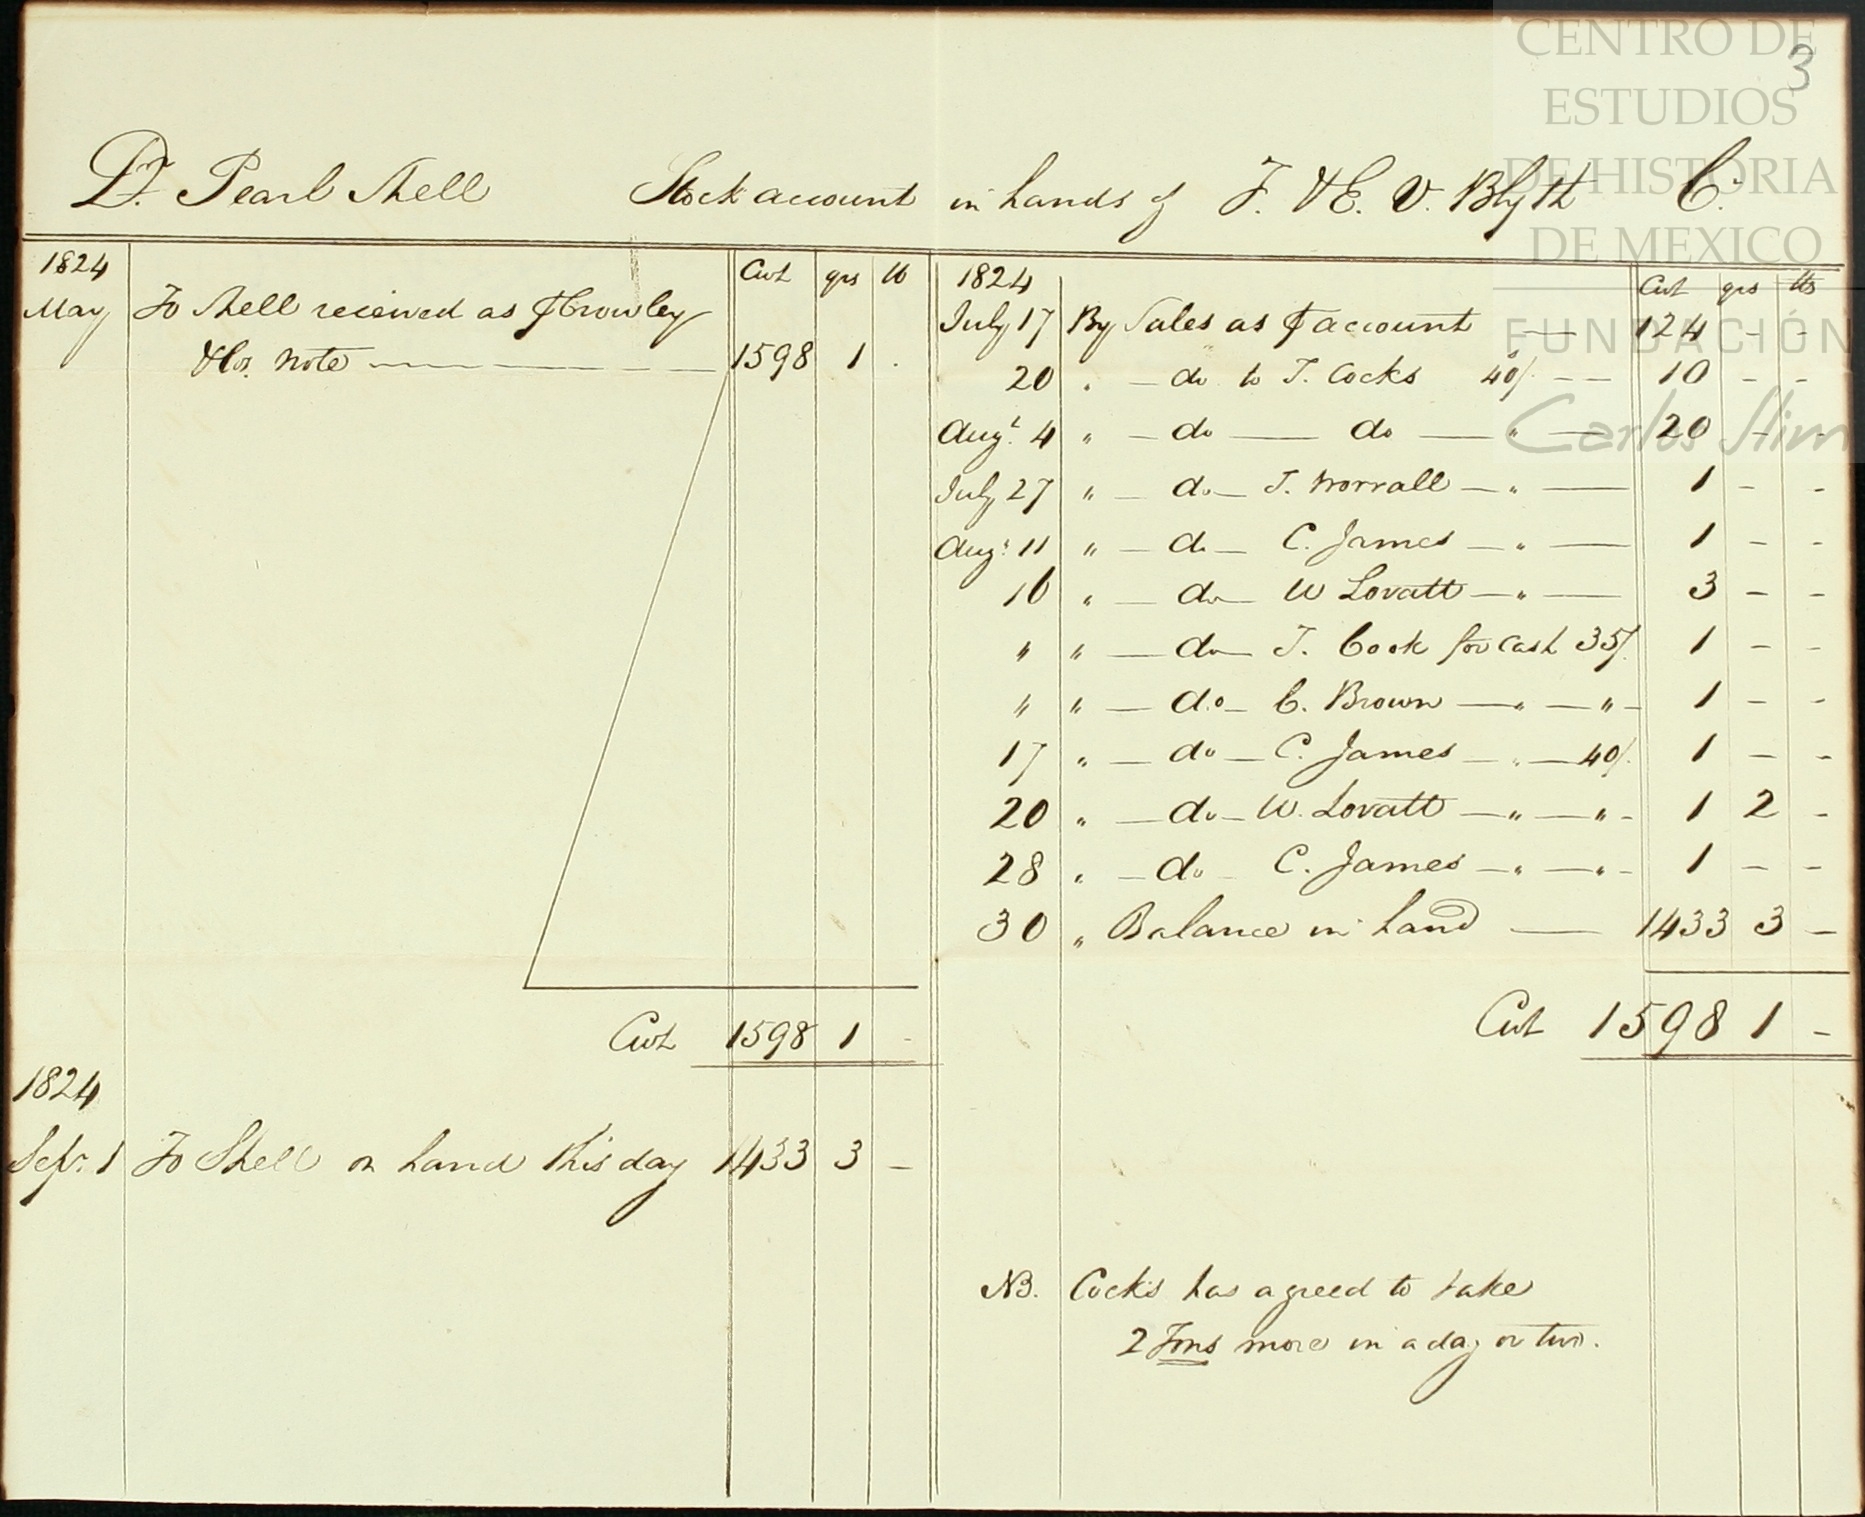 CENTRO DE
ESTUDIOS
DE HISTORIA
DE MEXICO
FUNDACIÓN
Carlos Slim
3
Dr. Pearl Shell Stock account in hands of F. & E. V. Blyth Cr.
1824 Cwt qrs lb
May To Shell received as ⅌ Crowley
& Cos. note 1598 1 .
Cwt 1598 1 -
1824
Sepr. 1 To Shell on hand this day 1433 3 -
1824 Cwt qrs lbs
July 17 By Sales as ⅌ account — 124 - -
20 " - do to T. Cocks 40/. - - 10 - -
Augt. 4 " - do — do — " — 20 - -
July 27 " - do - T. Worrall - " — 1 - -
Augt. 11 " - do - C. James - " — 1 - -
16 " - do - W Lovatt - " — 3 - -
" " - do - T. Cook for cash 35/. 1 - -
" " - do - C. Brown - " - " - 1 - -
17 " - do - C. James - " - 40/. 1 - -
20 " - do - W. Lovatt - " - " - 1 2 -
28 " - do - C. James - " - " - 1 - -
30 " Balance in hand — 1433 3 -
Cwt 1598 1 -
NB. Cocks has agreed to take
2 Tons more in a day or two.